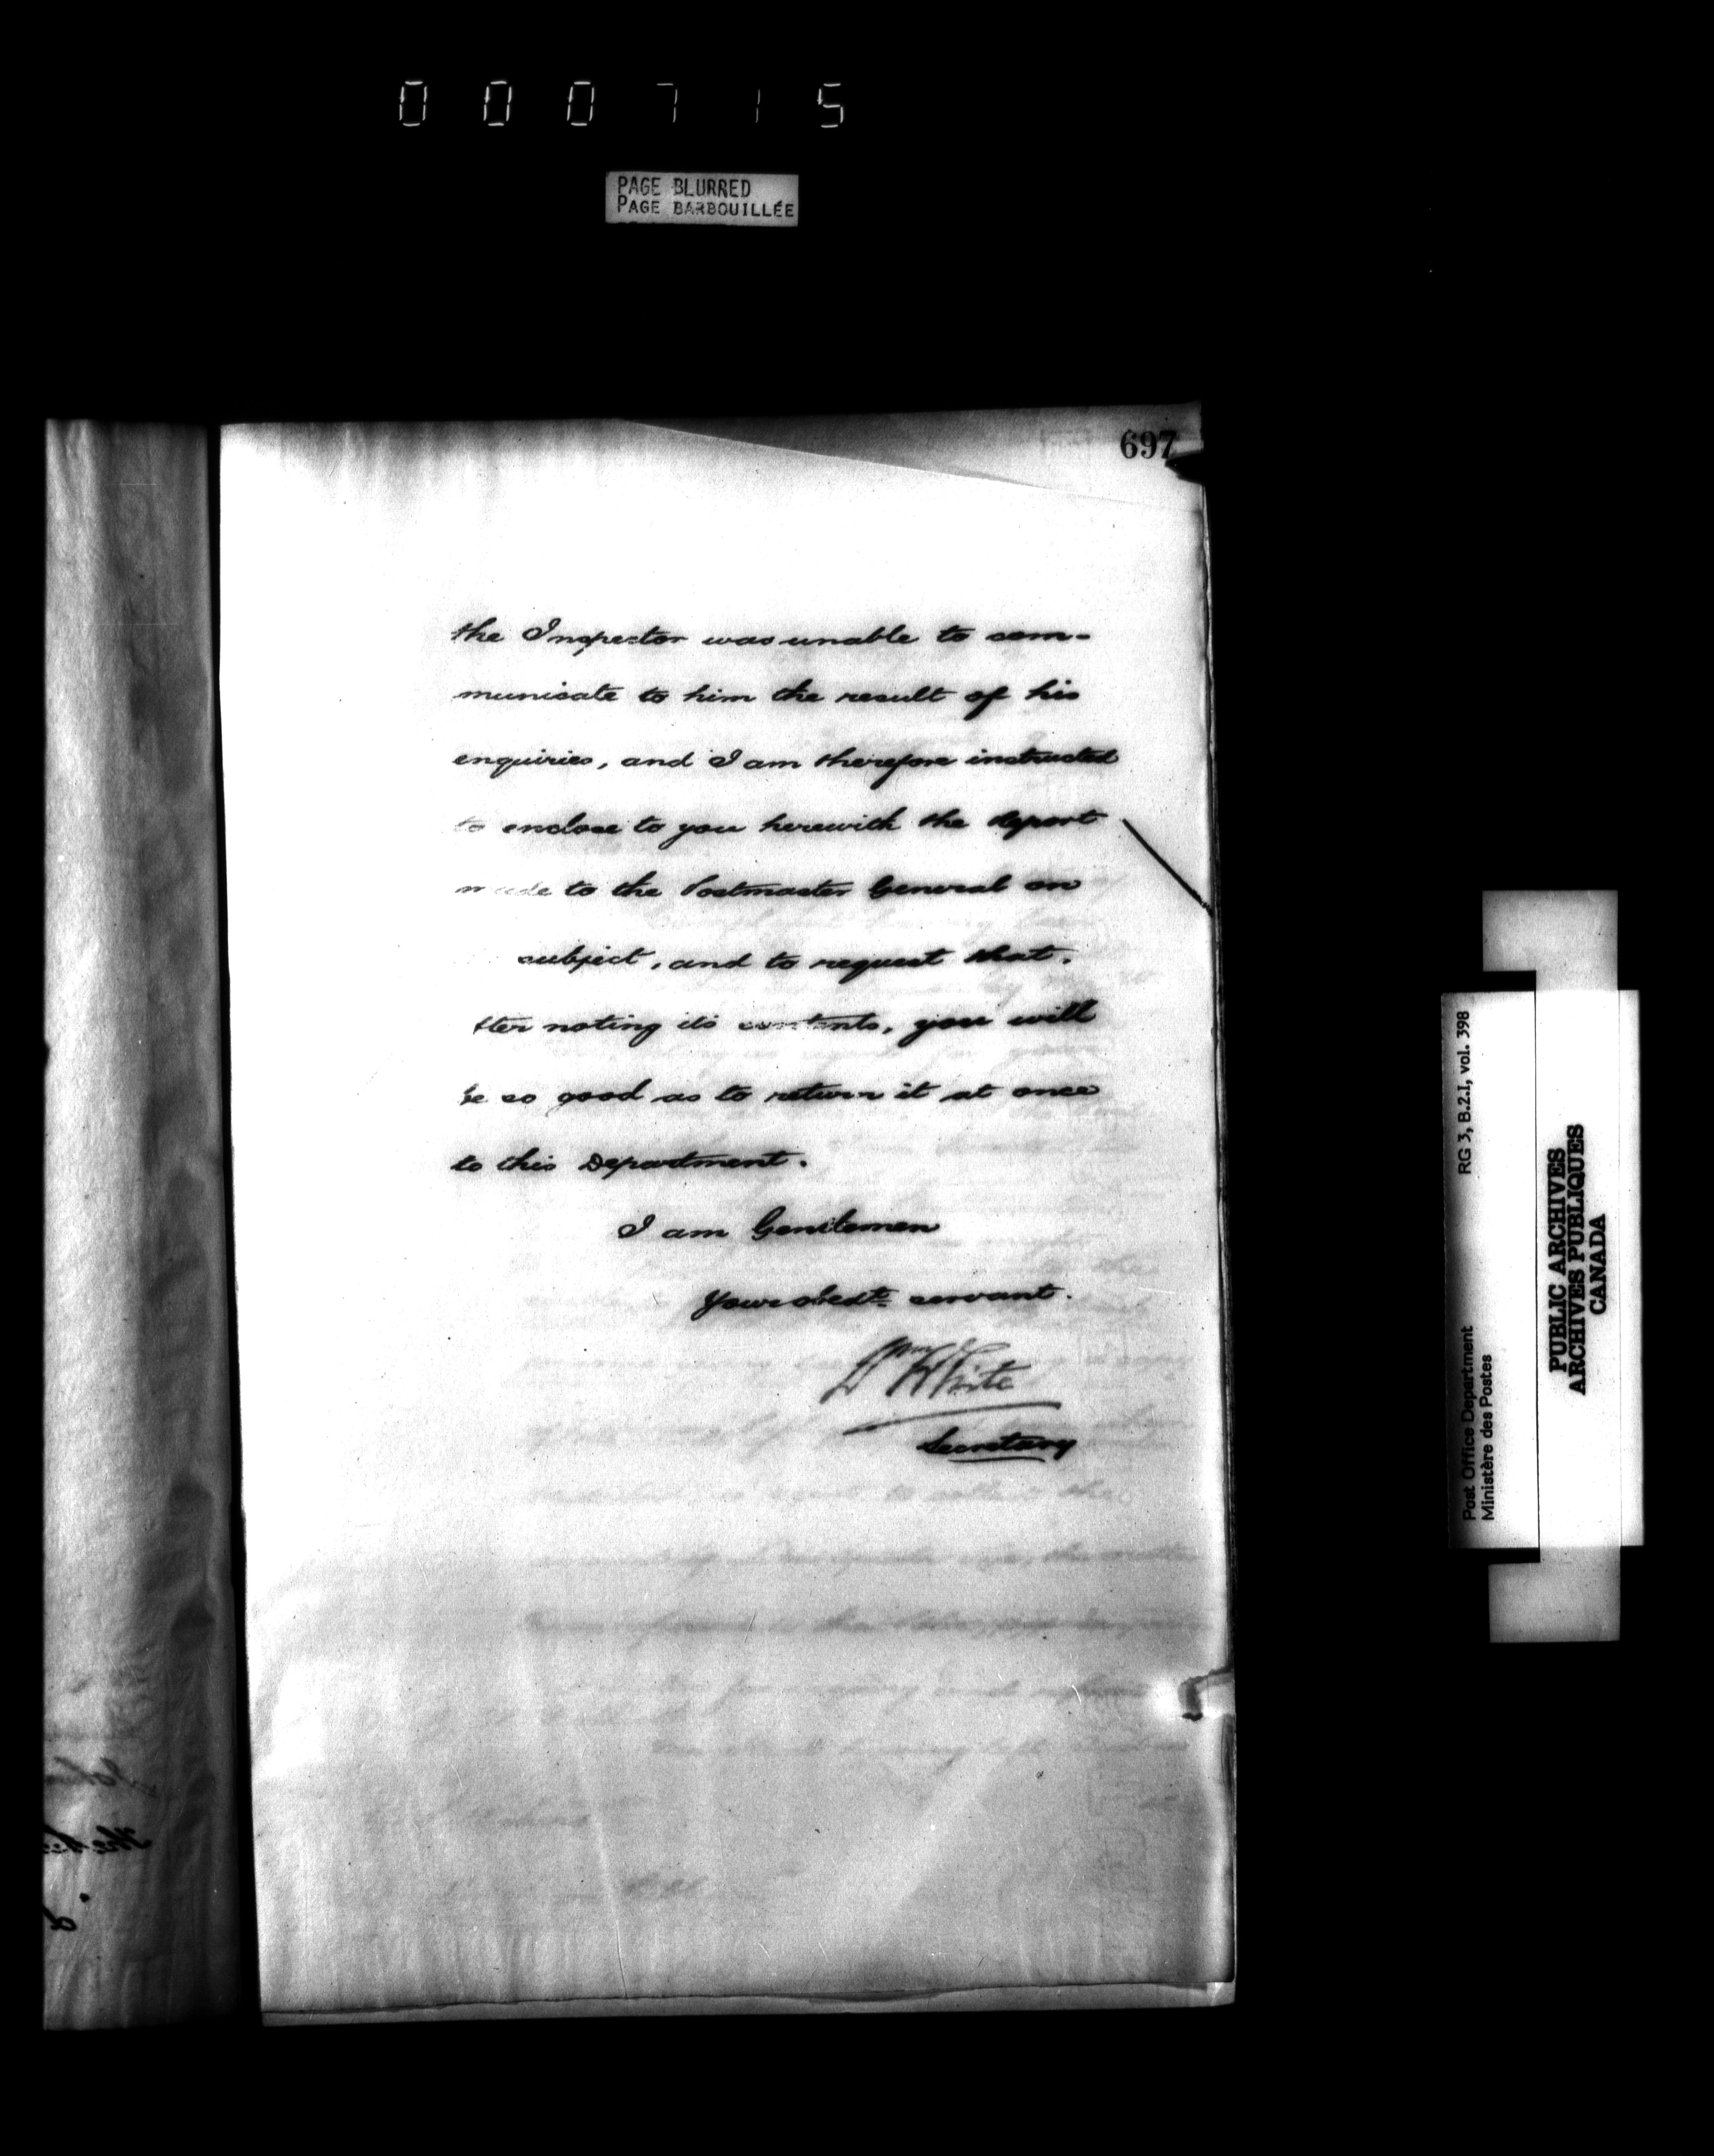 000715
PAGE BLURRED
PAGE BARBOUILLÉE
697
the Inspector was unable to com-
municate to him the result of his
enquiries, and I am therefore instructed
to enclose to you herewith the Report
made to the Postmaster General on
subject, and to request that,
fter noting its contents, you will
be so good as to return it at once
to this Department.
I am Gentlemen
Your obedt. servant.
Wm White
Secretary
RG 3, B.2.I, vol. 398
Post Office Department
Ministère des Postes
PUBLIC ARCHIVES
ARCHIVES PUBLIQUES
CANADA